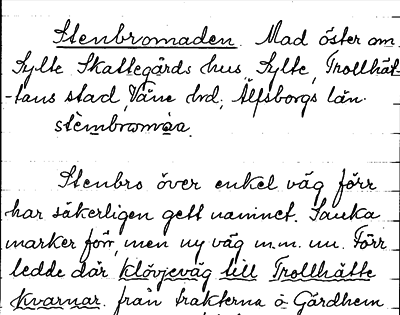 Stenbromaden. Mad öster om
Sylte Skattegårds hus, Sylte, Trollhät-
-tans stad, Väne hrd, Älfsborgs län.
stèmbromáa.
Stenbro över enkel väg förr
har säkerligen gett namnet. Sanka
marker förr, men ny väg m.m. nu. Förr
ledde där klövjeväg till Trollhätte
kvarnar från trakterna ö Gärdhem